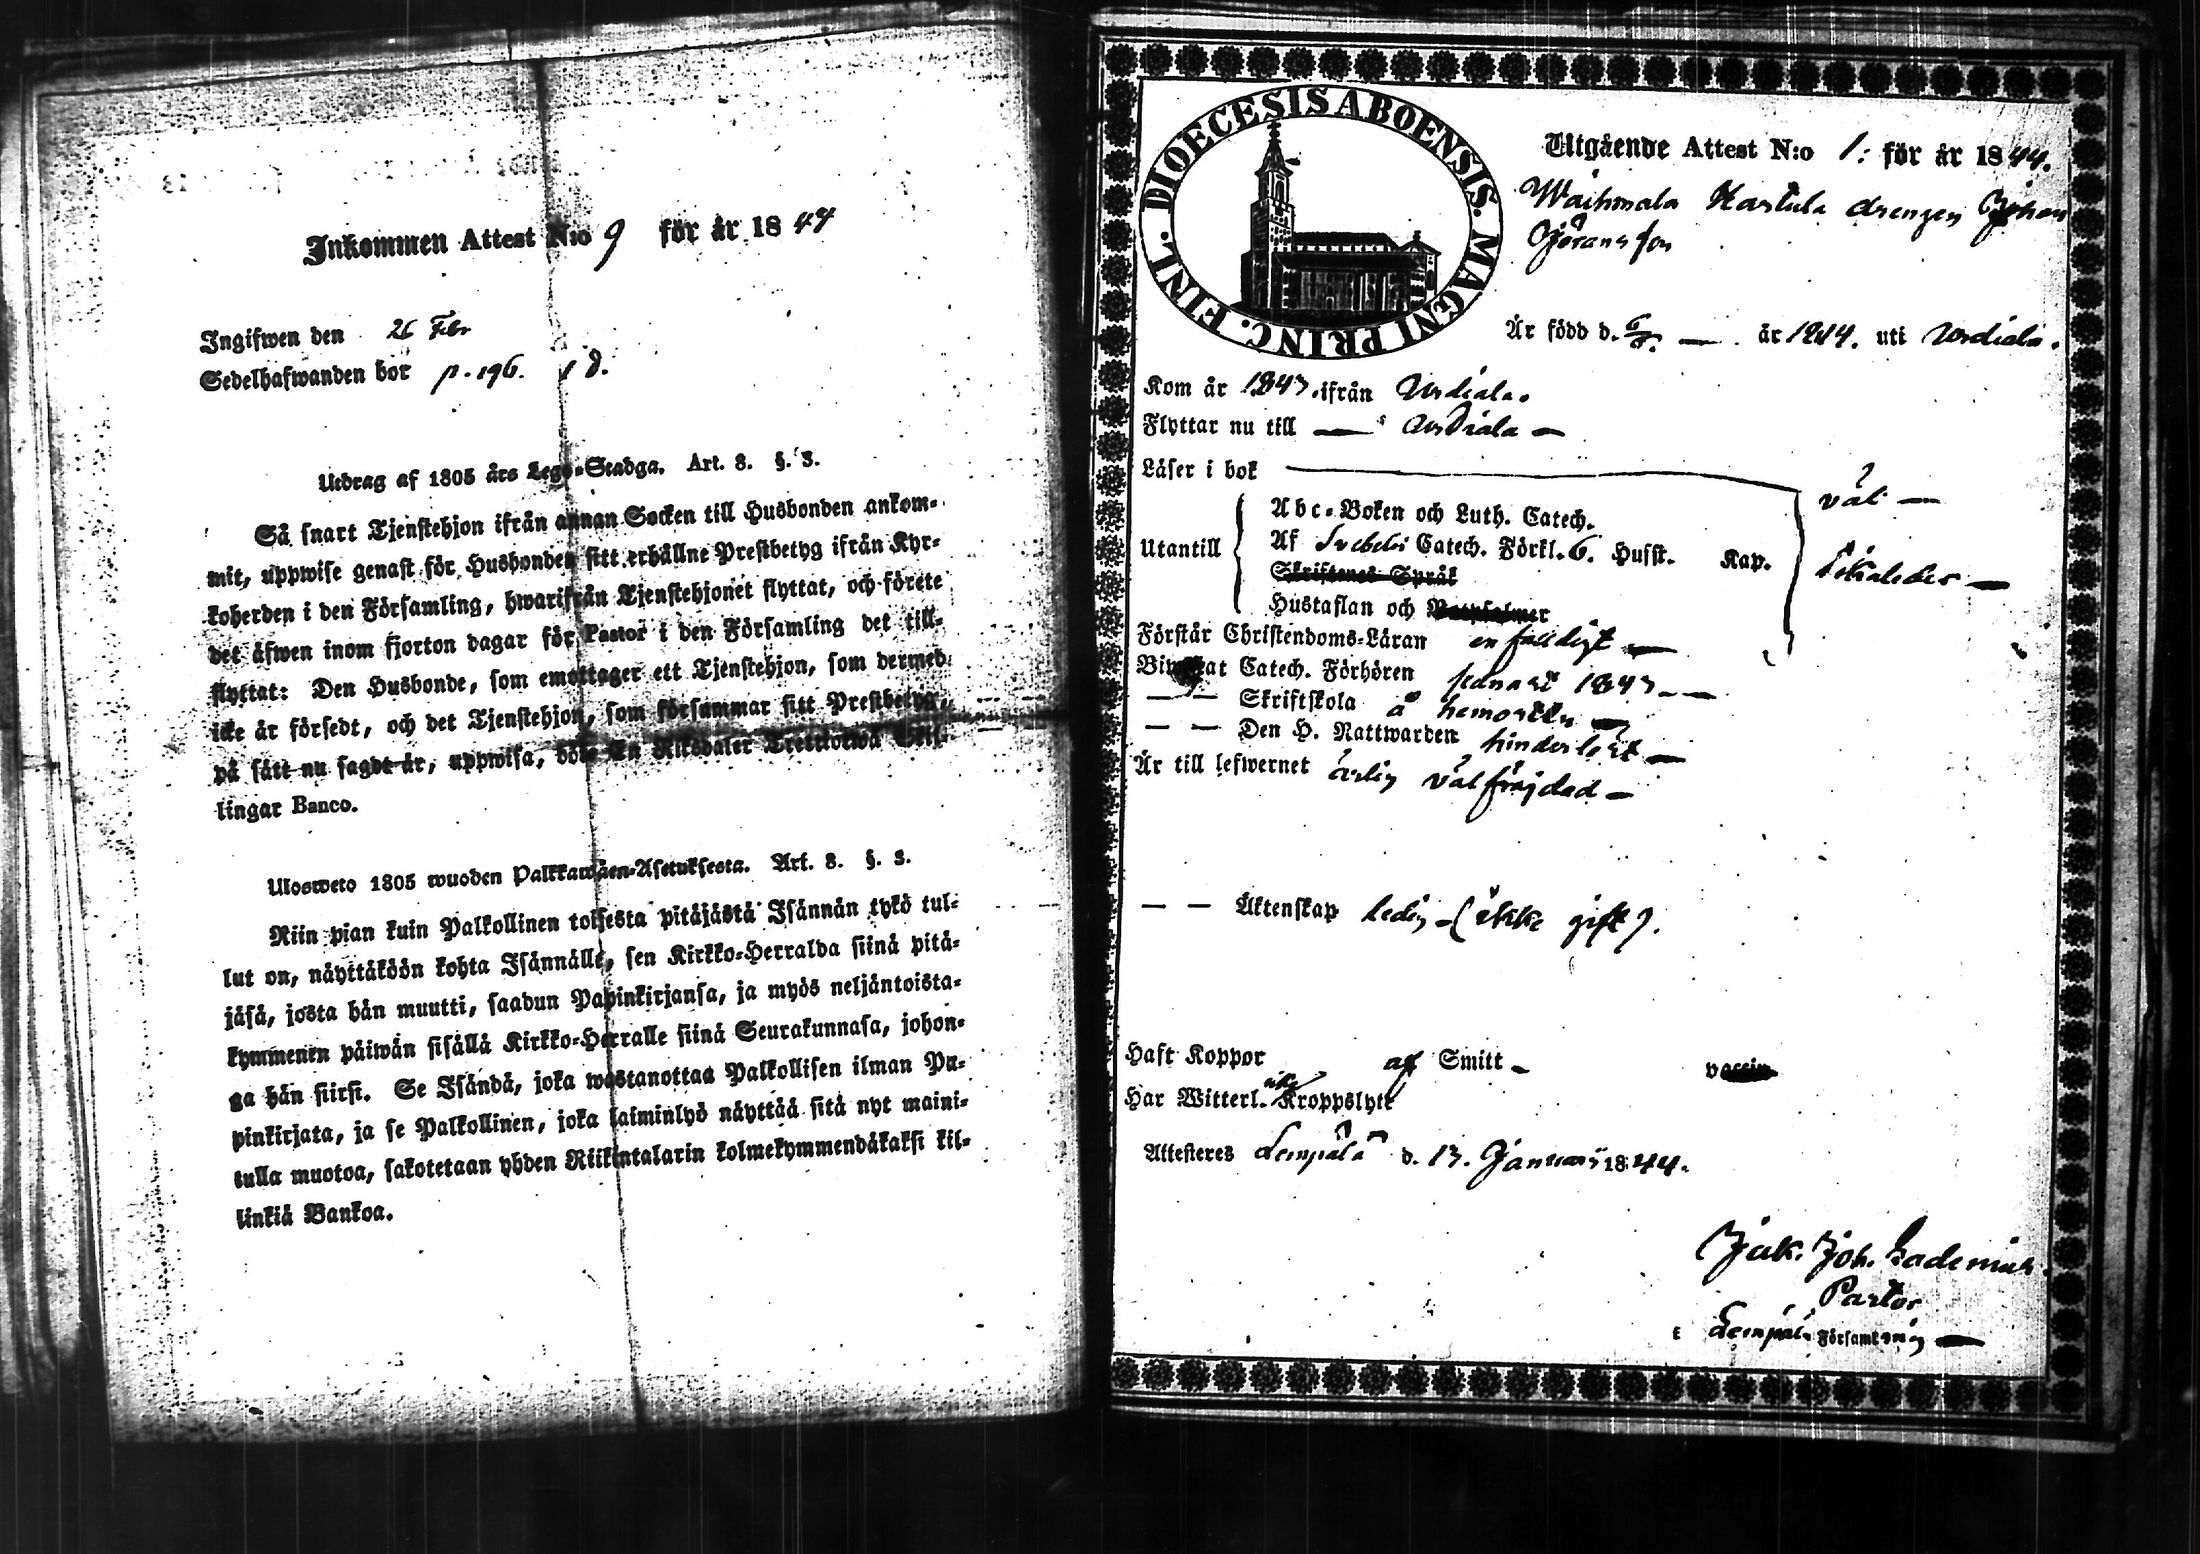 Inkommen Attest N:o 9 för år 1844
Ingifwen den 26 Febr
Sedelhafwanden bor p. 196.
Utdrag af 1805 års Lego-Stadga. Art. 8. §. 3.
Så snart Tjenstehjon ifrån annan Socken till Husbonden ankom-
mit, uppwise genast för Husbonden sitt erhållne Prestbetyg ifrån Kyr-
koherden i den Församling, hwarifrån Tjenstehjonet flyttat, och förete
det äfwen inom fjorton dagar för Pastor i den Församling det till-
flyttat: Den Husbonde, som emottager ett Tjenstehjon, som dermed
icke är försedt, och det Tjenstehjon, som försummar sitt Prestbetyg,
på sätt nu sagdt är, uppwisa, böte En Riksdaler Trettiotwå Skil-
lingar Banco.
Ulosweto 1805 wuoden Palkkawäen-Asetuksesta. Art. 8. §. 3.
Niin pian kuin Palkollinen toisesta pitäjästä Isännän tykö tul-
lut on, näyttäköön kohta Isännälle, sen Kirkko-Herralda siinä pitä-
jäsä, josta hän muutti, saadun Papinkirjansa, ja myös neljäntoista-
kymmenen päiwän sisällä Kirkko-Herralle siinä Seurakunnasa, johon-
ga hän siirsi. Se Isändä, joka wastanottaa Palkollisen ilman Pa-
pinkirjata, ja se Palkollinen, joka laiminlyö näyttää sitä nyt maini-
tulla muotoa, sakotetaan yhden Riikintalarin kolmekymmendäkaksi kil-
linkiä Bankoa.
DIOECESIS ABOENSIS. MAGNI PRINC. FINL.
Utgående Attest N:o 1: för år 1844.
Waihmala Kartula drengen Johan
Göransson
Är född d. 6/5. — år 1814. uti Urdiala.
Kom år 1843. ifrån Urdiala.
Flyttar nu till — Urdiala —
Läser i bok väl —
Abc-Boken och Luth. Catech.
Utantill Af Svebelii Catech. Förkl. 6. Husst. Kap.
Skriftenes Språk
Hustaflan och
Förstår Christendoms-Läran enfaldigt —
Bivistat Catech. Förhören senast 1843 —
— — Skriftskola å hemorten —
— — Den H. Nattwarden hinderlöst —
Är till lefwernet ärlig välfräjdad —
— — Äktenskap ledig — (ikke gift).
Haft Koppor af Smitt — vaccin
Har Witterl. icke Kroppslyte
Attesteres Lempälä d. 13. Januarii 1844.
Jak. Joh. Gadenius.
Pastor
i Lempälä Församling —